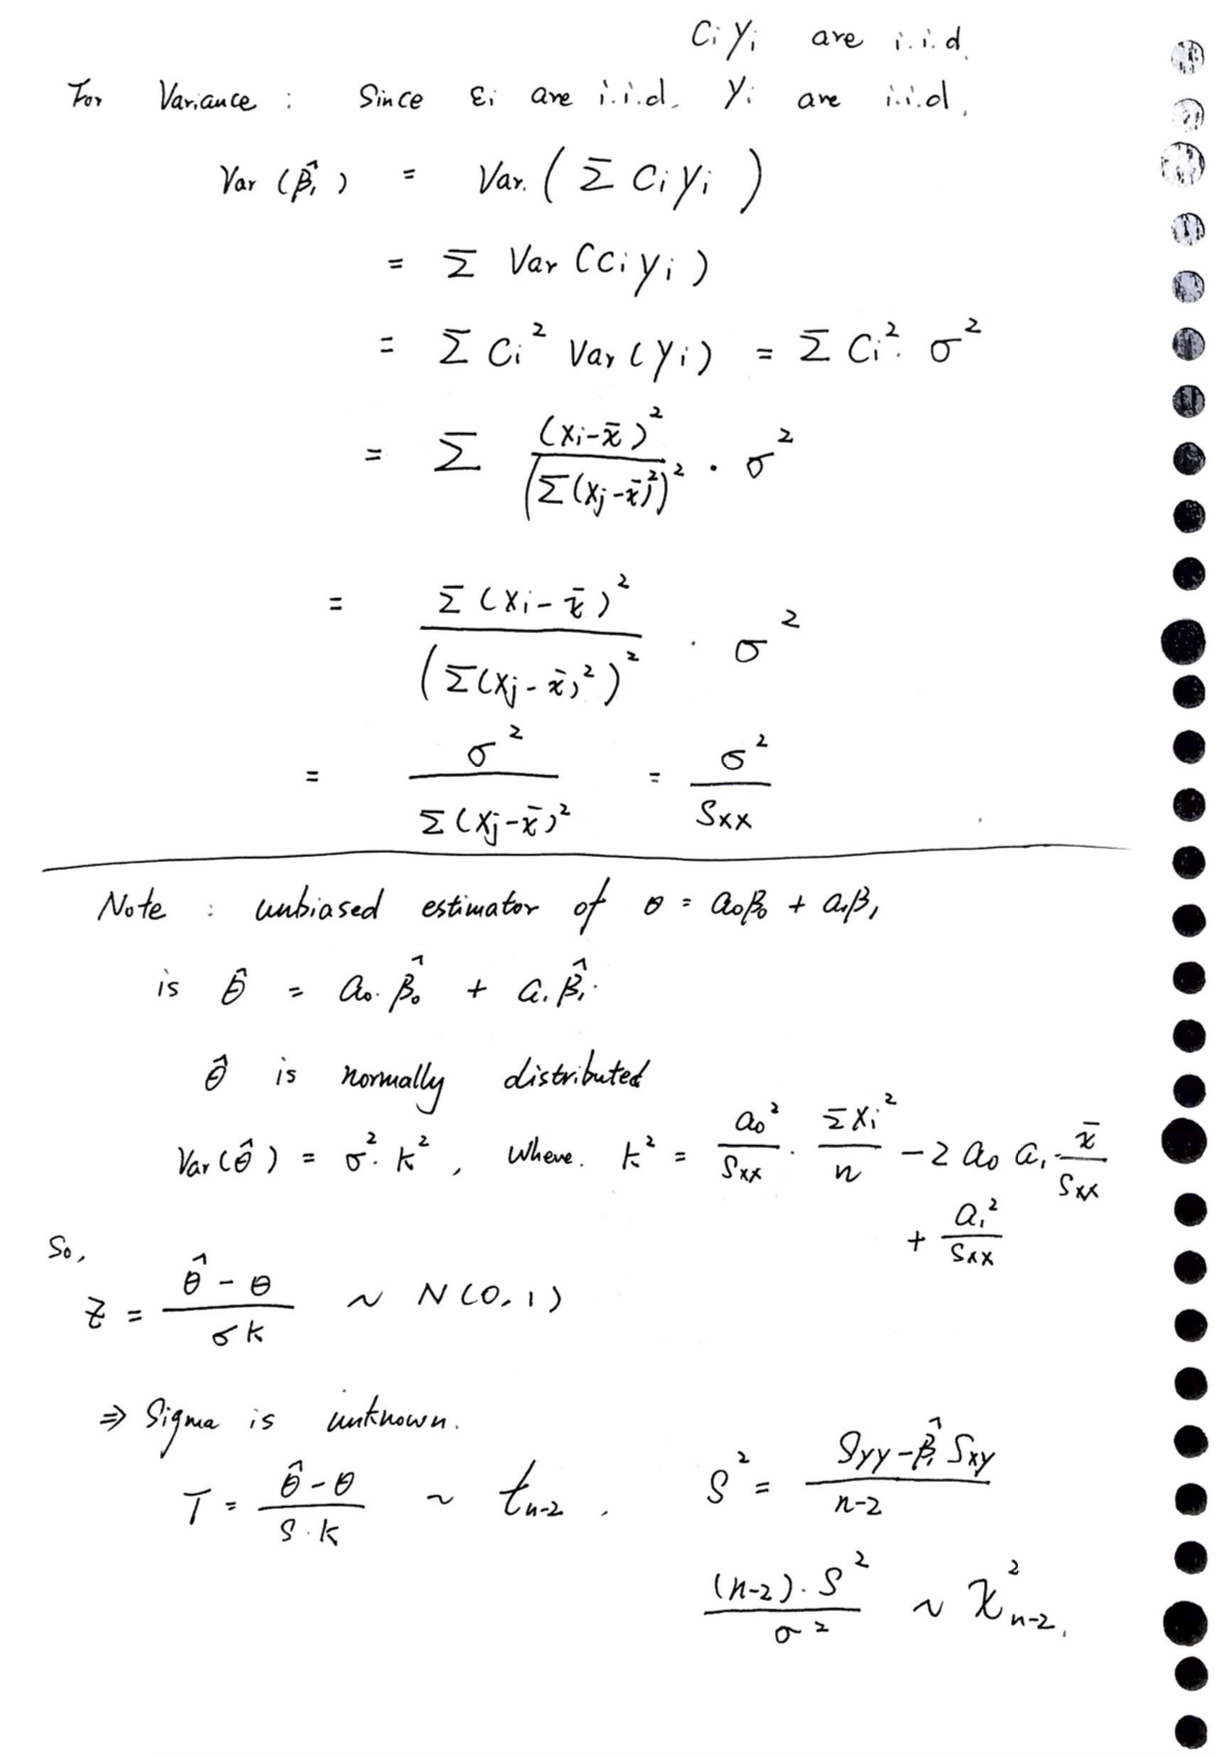 Ci Yi are i.i.d.
For Variance : Since εi are i.i.d. Yi are i.i.d.
Var (β̂₁) = Var. ( Σ Ci Yi )
= Σ Var (Ci Yi)
= Σ Ci² Var (Yi) = Σ Ci² · σ²
= Σ (Xi-x̄)² / (Σ(Xj-x̄)²)² · σ²
= Σ(Xi-x̄)² / (Σ(Xj-x̄)²)² · σ²
= σ² / Σ(Xj-x̄)² = σ² / Sxx
Note : unbiased estimator of θ = a₀β₀ + a₁β₁
is θ̂ = a₀·β̂₀ + a₁β̂₁.
θ̂ is normally distributed
Var(θ̂) = σ²·k² , where. k² = a₀²/Sxx · ΣXi²/n - 2 a₀ a₁ · x̄/Sxx
+ a₁²/Sxx
So,
Z = (θ̂ - θ) / σk ~ N(0,1)
⇒ Sigma is unknown.
T = (θ̂ - θ) / S·k ~ tn-2 . S² = (Syy - β̂₁ Sxy) / n-2
(n-2)·S² / σ² ~ χ²n-2.